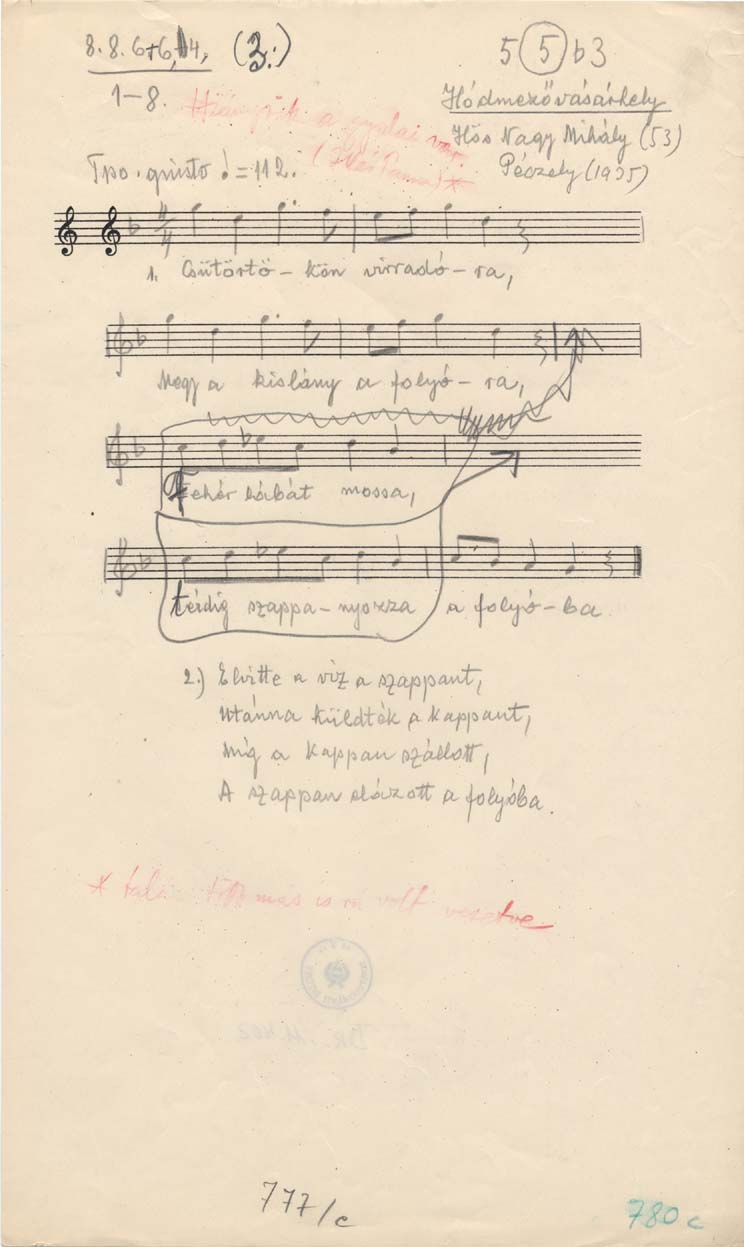 8. 8. 6+6, 4, (2.)
5 5 b3
1-8.
Hódmezővásárhely
Hős Nagy Mihály (53)
Péczely (1935)
Hiányzik a gyulai var.
Tpo. giusto = 112.
4/4
1. Csütörtö - kön virradó - ra,
Megy a kislány a folyó - ra,
Fehér lábát mossa,
térdig szappa - nyozza a folyó - ba.
2.) Elvitte a víz a szappant,
Utánna küldték a kappant,
Míg a kappan szállott,
A szappan elázott a folyóba.
* más is rá volt vezetve
777/c
780 c